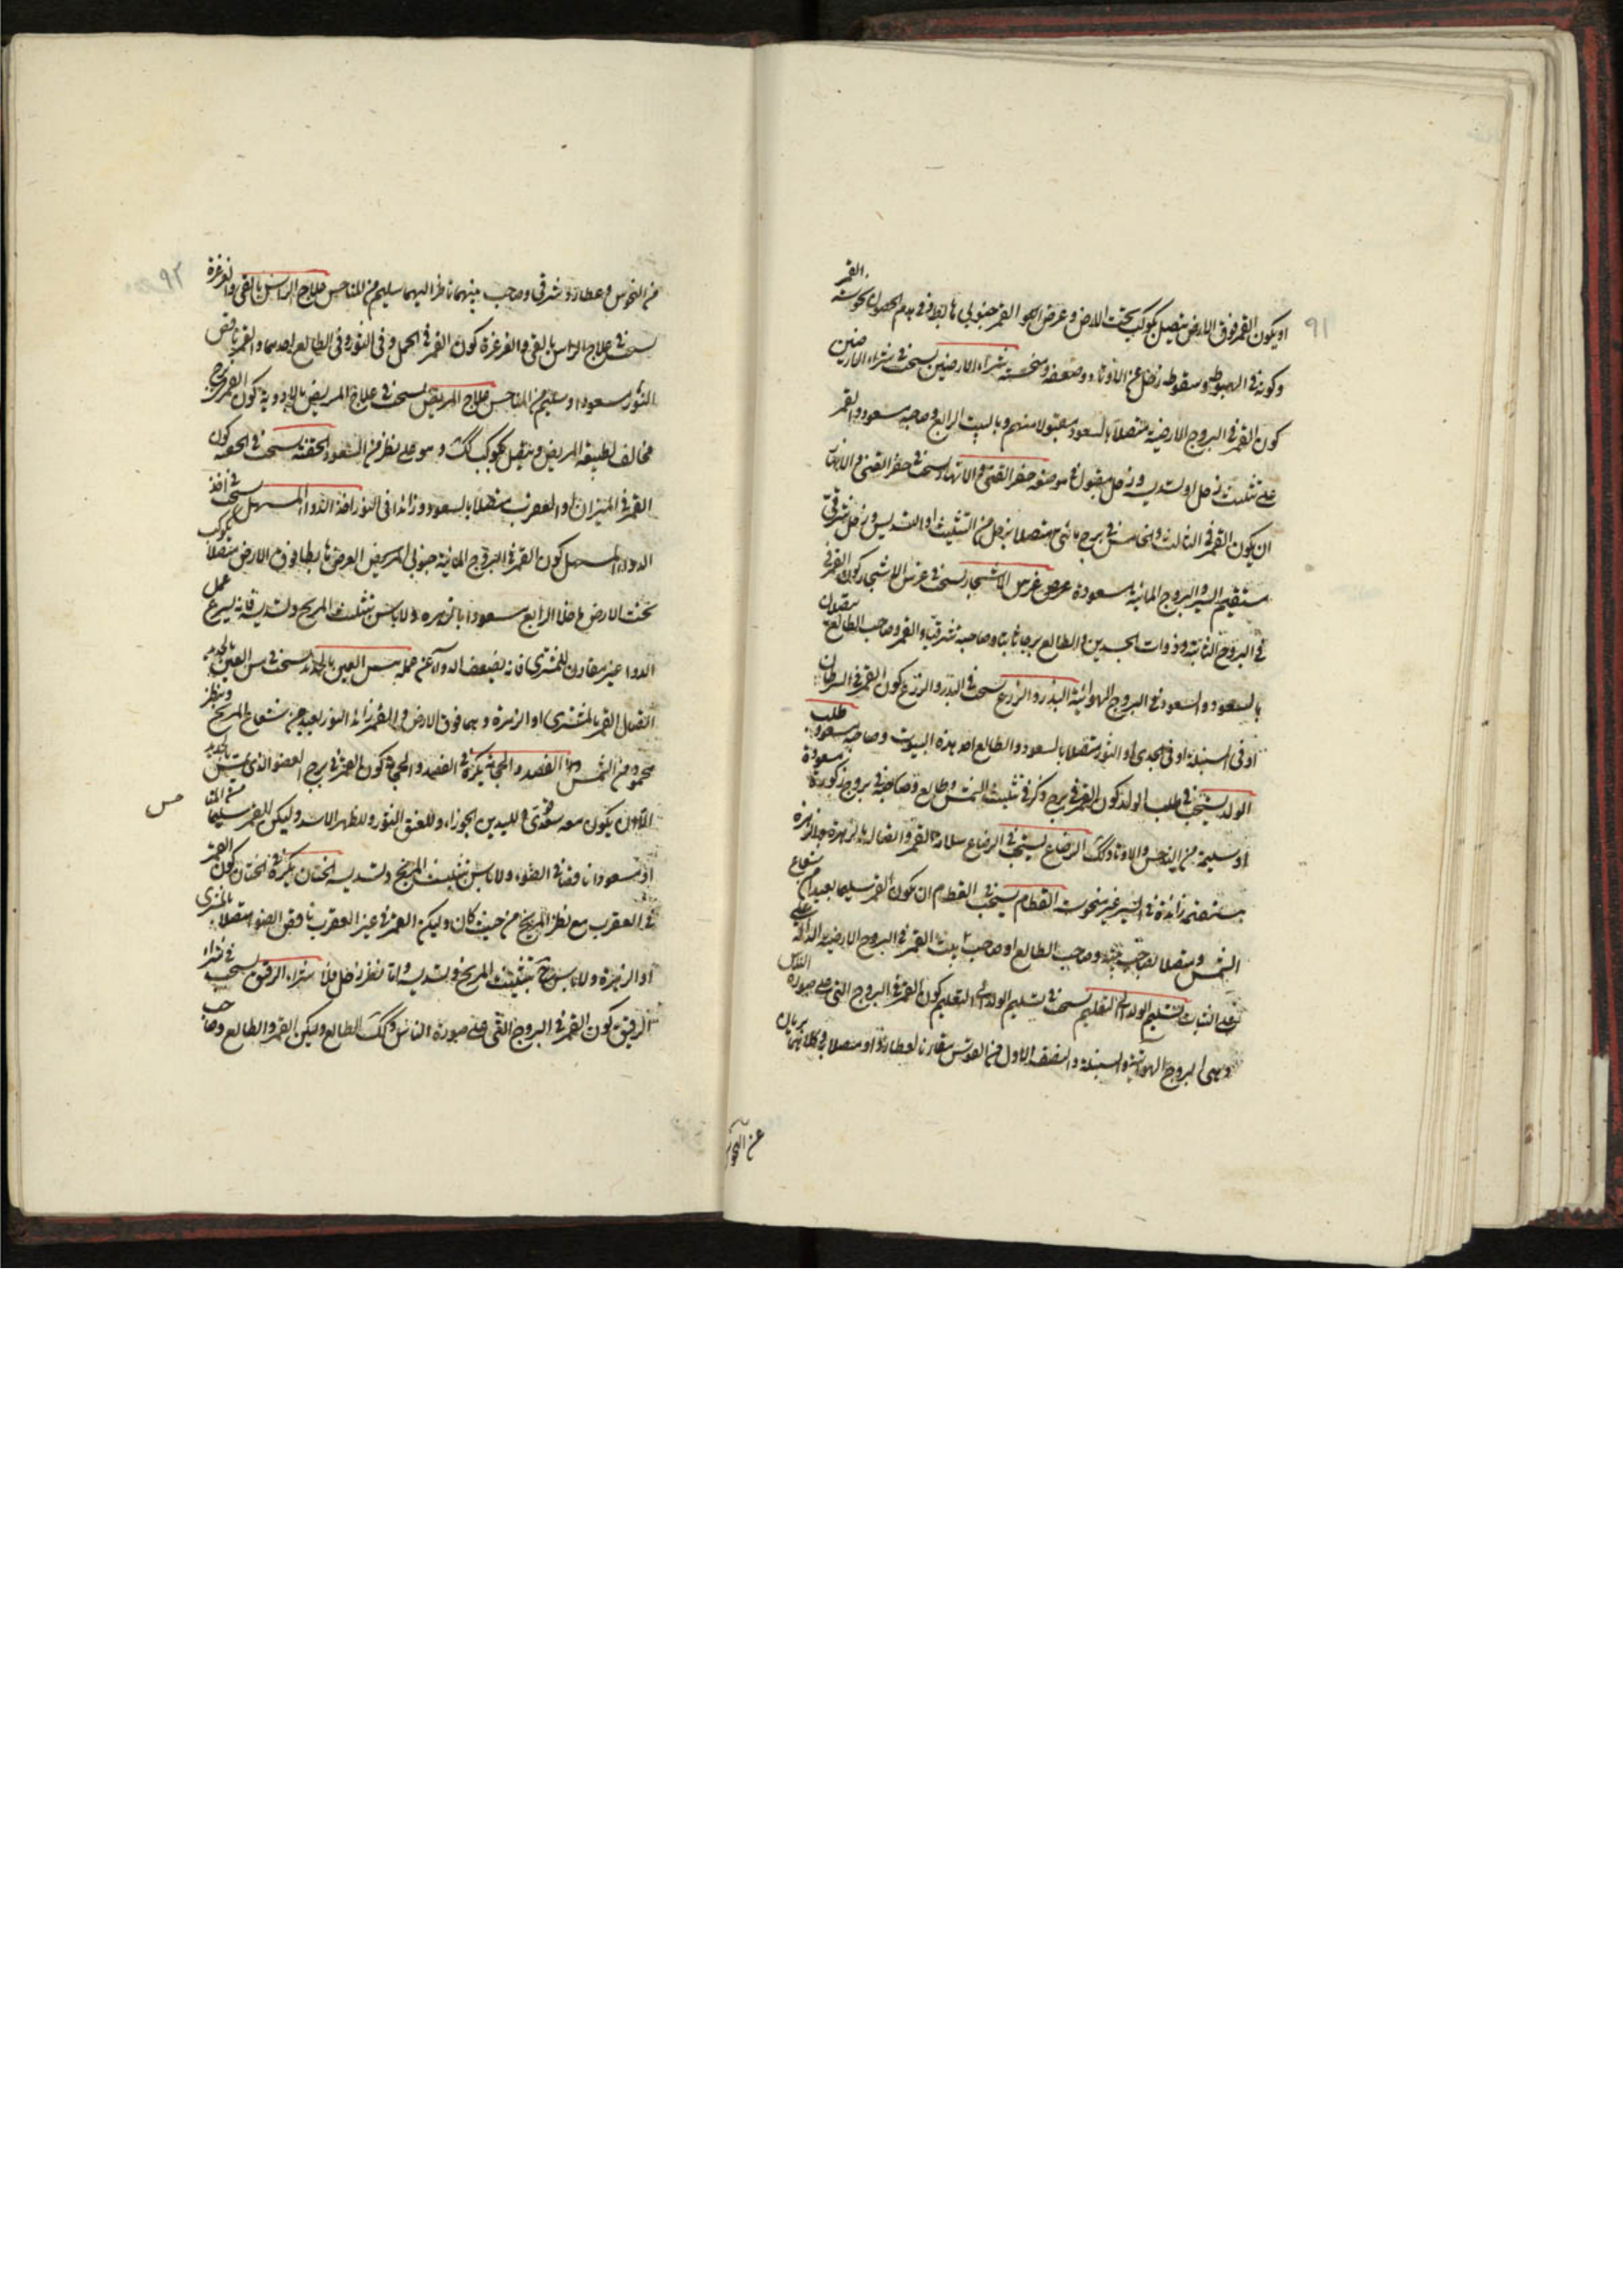 ٩١
او يكون القمر فوق الارض يتصل بكوكب تحت الارض وعرض القمر جنوبي هابط في هدم الحصون نحوسة القمر
وكونه في الهبوط وسقوط زحل عن الاوتاد وضعفه ونحسه شراء الارضين يستحب في شراء الارضين
كون القمر في البروج الارضية متصلا بالسعود مقبولا منهم وبالبيت الرابع وصاحبه مسعود والقمر
على تثليث زحل او تسديسه وزحل مقبول في موضعه حفر القنى والانهار يستحب في حفر القنى والانهار
ان يكون القمر في الثالث والخامس في برج مائى متصلا بزحل من التثليث او التسديس وزحل شرقى
مستقيم السير والبروج المائية مسعودة غرس الاشجار يستحب في غرس الاشجار كون القمر في
في البروج الثابتة وذوات الجسدين والطالع برجا ثابتا وصاحبه شرقيا والقمر وصاحب الطالع متصلان
بالسعود والسعود في البروج الهوائية البذر والزرع يستحب في البذر والزرع كون القمر في السرطان
او في السنبلة او في الجدى او الثور متصلا بالسعود والطالع احد هذه البيوت وصاحبه مسعود طلب
الولد يستحب في طلب الولد كون القمر في برج ذكر في تثليث الشمس وطالع وصاحبه في بروج ذكورة مسعودة
او سليمة من النحس والاوتاد كك الرضاع يستحب في الرضاع سلامة القمر واتصاله بالزهرة والزهرة
مستقيمة زائدة في السير غير منحوسة الفطام يستحب في الفطام ان يكون القمر سليما بعيدا من شعاع
الشمس ومتصلا بصاحب بيته وصاحب الطالع او صاحب بيت القمر في البروج الارضية الدالة على
على النبات تسليم الولد الى التعليم يستحب في تسليم الولد الى التعليم كون القمر في البروج التى على صورة الناس
وهى البروج الهوائية والسنبلة والنصف الاول من القوس مقارنا لعطارد او متصلا به وكلاهما بريان
عن النحوس
٩٢
من النحوس وعطارد شرقى وصاحب بيتهما ناظر اليهما سليم من المناحس علاج الراس بالقى والغرغرة
يستحب في علاج الراس بالقى والغرغرة كون القمر في الحمل وفى الثور وفى الطالع احدهما والقمر ناقص
النور مسعود او سليم من المناحس علاج المريض يستحب في علاج المريض بالادوية كون القمر في برج
مخالف لطبيعة المريض ويتصل بكوكب كك وهو على نظر من السعود الحقنة يستحب في الحقنة كون
القمر في الميزان او العقرب متصلا بالسعود وزائدا في النور اخذ الدواء المسهل يستحب في اخذ
الدواء المسهل كون القمر في البروج المائية جنوبى العرض هابطا فوق الارض متصلا بكوكب
تحت الارض خاصا الرابع مسعودا بالزهرة ولا باس بتثليث المريخ وتسديسه فانه يسرع عمل
الدواء غير مقارن للمشترى فانه يضعف الدواء عن عمله مس العين بالحديد يستحب في مس العين بالحديد
اتصال القمر بالمشترى او الزهرة وهما فوق الارض والقمر زائد النور بعيد من شعاع المريخ وينظر
محمود من الشمس الفصد والحجامة يكره في الفصد والحجامة كون القمر في برج العضو الذى يمس بالحديد
الا ان يكون معه سعد وللبدين الجوزاء وللعنق الثور وللظهر الاسد وليكن القمر سليما من المناحس
او مسعودا ناقصا في الضوء ولا باس بتثليث المريخ وتسديسه الختان يكره في الختان كون القمر
في العقرب مع نظر المريخ من حيث كان وليكن القمر في غير العقرب ناقص الضوء متصلا بالمشترى
او الزهرة ولا باس بتثليث المريخ وتسديسه واما نظر زحل فلا شراء الرقيق يستحب في شراء
الرقيق كون القمر في البروج التى على صورة الناس وكك الطالع وليكن القمر والطالع وصاحب